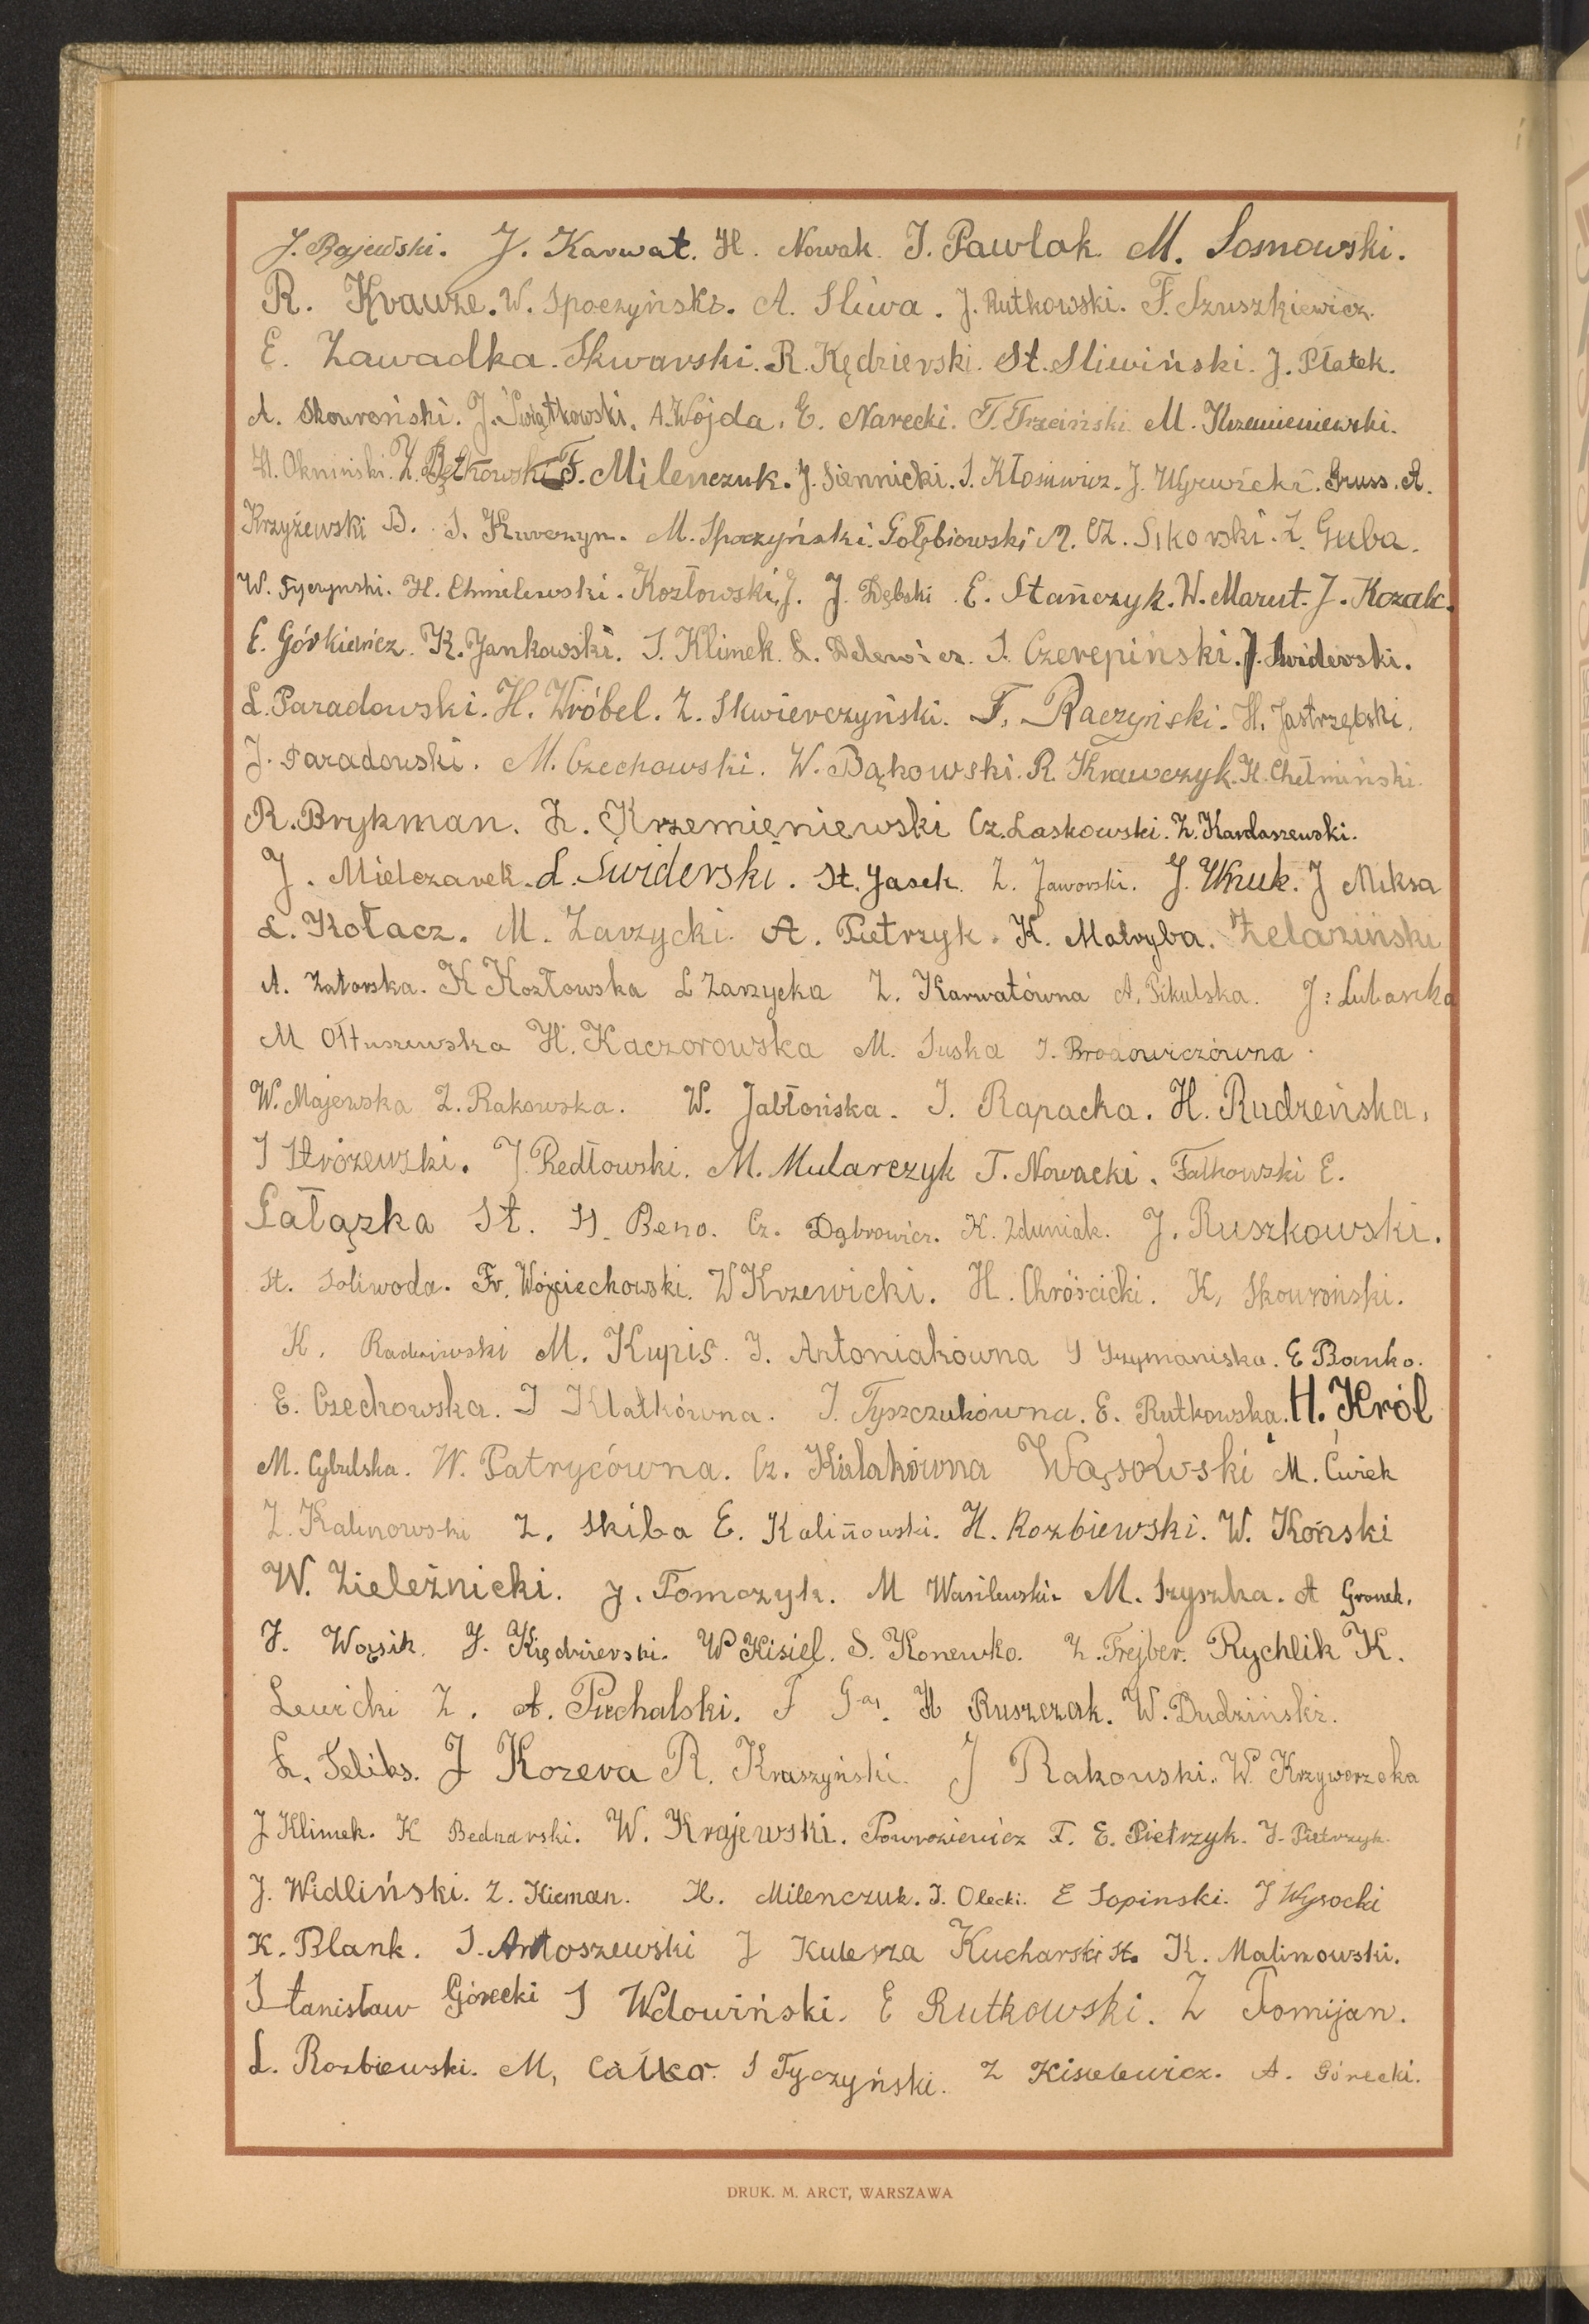 J. Rajewski. J. Karwat. H. Nowak. J. Pawlak. M. Sosnowski.
R. Krauze. W. Spoczyński. A. Śliwa. J. Rutkowski. F. Szuszkiewicz.
E. Zawadka. Skwarski. R. Kędzierski. St. Sliwiński. J. Płatek.
A. Skowroński. J. Świątkowski. A. Wojda. E. Narecki. T. Trzciński. M. Krzemieniewski.
H. Okniński. Z. Bętkowski F. Milenczuk. J. Siennicki. S. Kłosiewicz. J. Wyrwicki. Gruss. A.
Krzyżewski B. S. Kurczyn. M. Spoczyński. Gołębiowski M. Cz. Sikorski. Z. Guba.
W. Tyczynski. H. Chmilewski. Kozłowski J. J. Dębski. E. Stańczyk. W. Marut. J. Kozak.
E. Górkiewicz. K. Jankowski. S. Klimek. L. Delewicz. S. Czerepiński. J. Swiderski.
L. Paradowski. H. Wróbel. Z. Skwierczyński. F. Raczyński. H. Jastrzębski.
J. Paradowski. M. Czechowski. W. Bąkowski. R. Krawczyk. H. Chełmiński.
R. Brykman. Z. Krzemieniewski Cz. Laskowski. Z. Kardaszewski.
J. Mielczarek. L. Świderski. St. Jasek. Z. Jaworski. J. Wnuk. J Miksa
L. Kołacz. M. Zarzycki. A. Pietrzyk. K. Matryba. Żelaziński
A. Zatorska. K Kozłowska L Zarzycka Z. Karwatówna A. Pikulska. J. Lubaska
M Ołtuszewska H. Kaczorowska M. Suska J. Brodowiczówna.
W. Majewska Z. Rakowska. W. Jabłońska. J. Rapacka. H. Rudzeńska.
J Stróżewski. J. Redłowski. M. Mularczyk T. Nowacki. Falkowski E.
Gałązka St. H. Beno. Cz. Dąbrowicz. K. Zduniak. J. Ruszkowski.
St. Soliwoda. Fr. Wojciechowski. W Krzewicki. H. Chróścicki. K. Skowroński.
K. M. Kupis. J. Antoniakówna S Szymaniska. E Banko.
E. Czechowska. J Klatkówna. J. Tyszczukówna. E. Rutkowska. H. Król
M. Cybulska. W. Patrycówna. Cz. Kulakówna Wąsowski M. Ćwiek
Z. Kalinowski Z. Skiba E. Kalinowski. H. Rozbiewski. W. Koński
W. Zieleźnicki. J. Tomczyk. M Wasilewski. M. Szyszka. A Gronek.
J. Wojsik. J. Kiędzierski. W Kisiel. S. Konewko. Z. Frejber. Rychlik K.
Lewicki Z. A. Puchalski. F Gaj. H Ruszczak. W. Dudziński.
L. Feliks. J Kozera R. Kraszyński. J Rakowski. W. Krzyworzeka
J Klimek. K Bednarski. W. Krajewski. Powrozienicz F. E. Pietrzyk. J. Pietrzyk.
J. Widliński. Z. Kieman. H. Milenczuk. J. Olecki. E Sopinski. J Wysocki
K. Blank. S. Antoszewski J Kulesza Kucharski St. K. Malinowski.
Stanisław Górecki S Wdowiński. E Rutkowski. Z Tomijan.
L. Rozbiewski. M, Całka. S Tyczyński. Z Kisielewicz. A. Górecki.
DRUK. M. ARCT, WARSZAWA